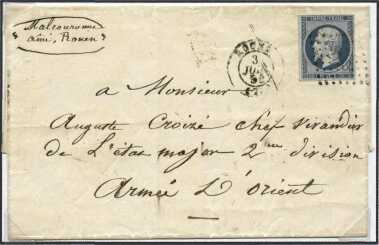 Malcouronne
aîné, Rouen
ROUEN
3
EMPIRE FRANC
a Monsieur
Auguste Croizé chef vivandier
de L'état major 2me division
Armée d'Orient